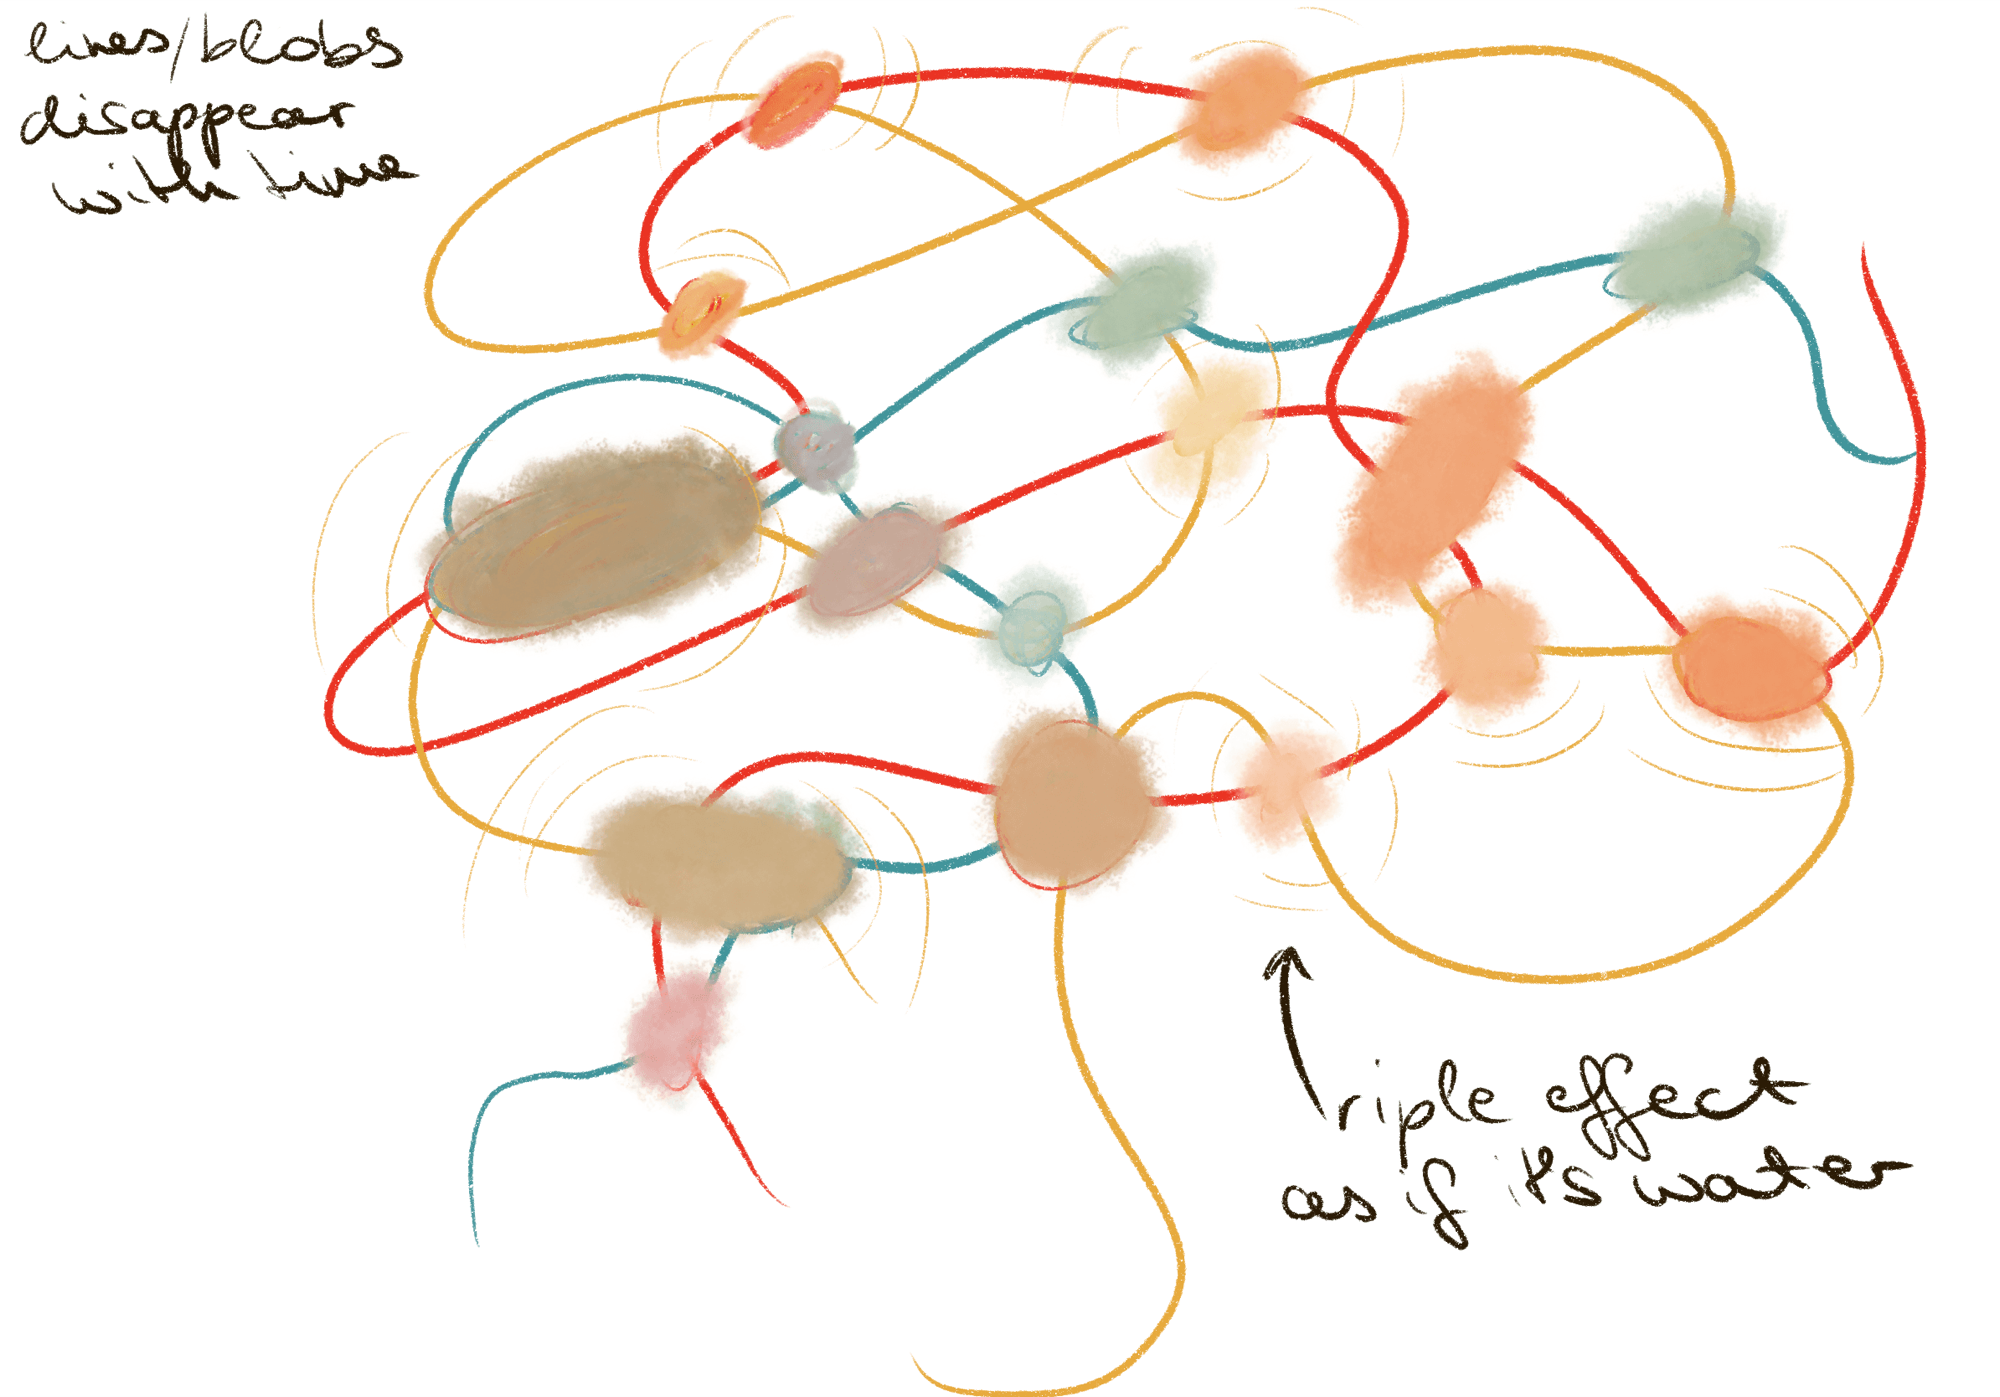 lines/blobs
disappear
with time
riple effect
as if it's water